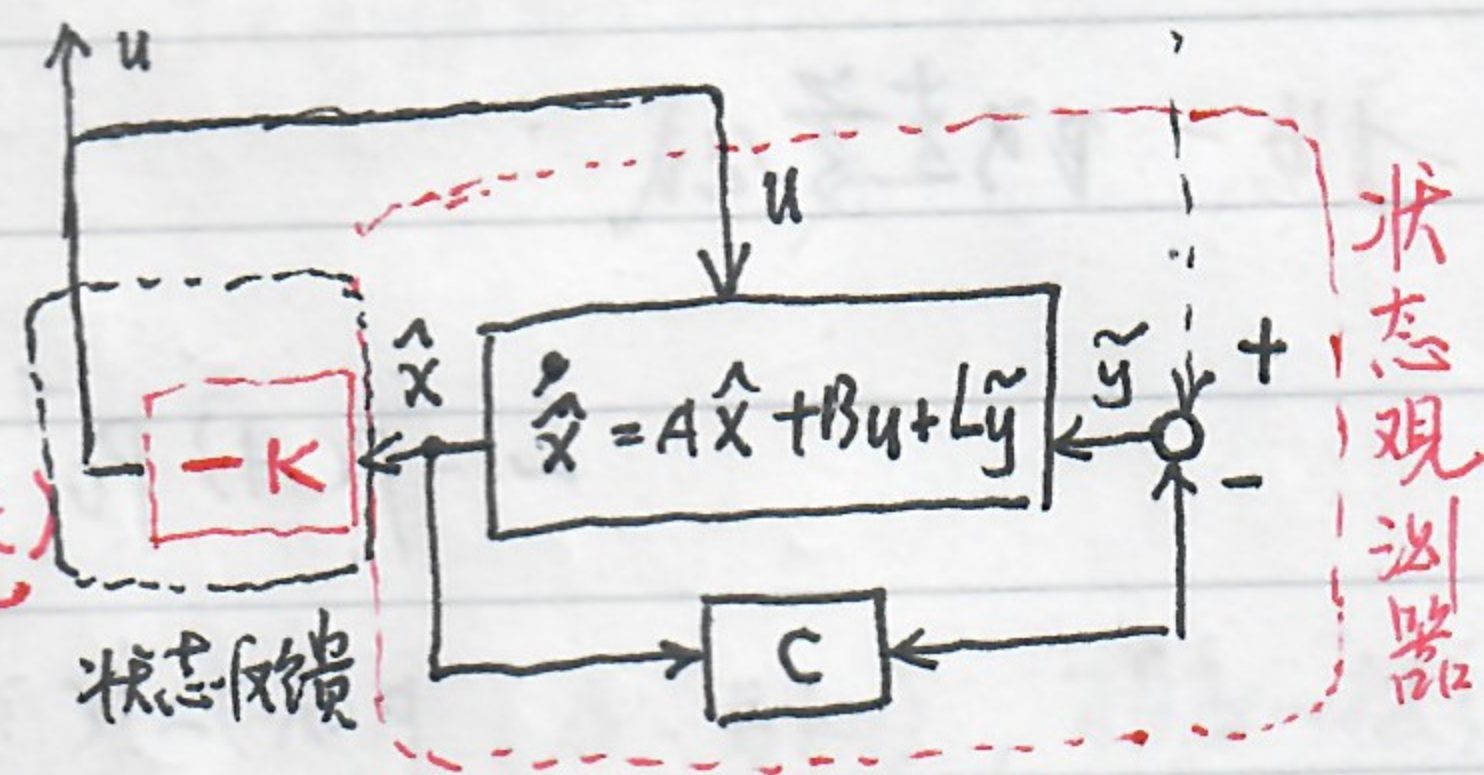 u
u
x̂
x̂̇ = Ax̂ + Bu + Lỹ
ỹ
+
-
-K
C
状态反馈
状态观测器